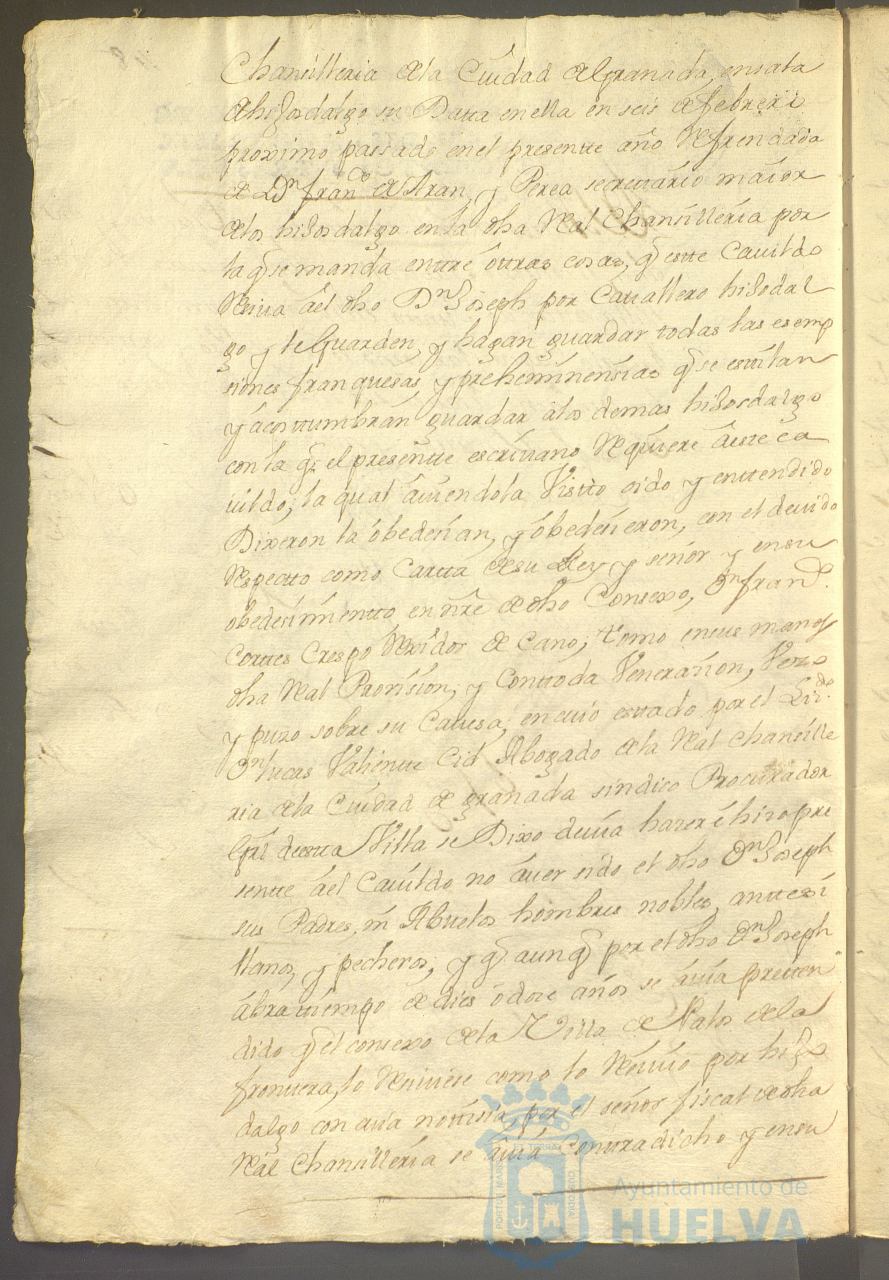 Chansilleria de la Ciudad de Granada, en sala
de hijosdalgo su Data en ella en seis de febrero
proximo passado en el presente año Refrendada
de Dn franco de Aran, y Perea secretario maior
de los hijosdalgo en la dha Real Chansilleria por
la q̃ se manda entre otras cosas, q̃ este Cavildo
Reciva a el dho Dn Joseph por Cavallero hijodal
go y le Guarden, y hagan guardar todas las esemp
siones franquesas, y prehemïnensias q̃ se estilan
y acostumbran guardar a los demas hijosdalgo
con la q̃ el presente escrivano Requiere a este Ca
vildo; la qual aviendola Visto oido y entendido
Dixeron la obedesian, y obedesieron, con el devido
Respecto como Carta de su Rey, y señor y en su
obedesimiento en nre de dho Consexo, Dn franco.
Cortes Crespo Rexidor de Cano; tomo en sus manos
dha Real Provision; y Con toda Venerasion, Veso
y puso sobre su Cavesa; en cuio estado por el Lizdo.
Dn Lucas Valiente Cid Abogado de la Real Chansille
ria de la Ciudad de Granada sindico Procurador
Gral de esta Villa se Dixo devia hazer é hizo pre
sente a el Cavildo no aver sido el dho Dn Joseph
sus Padres, ni Abuelos hombres nobles, antes si
llanos, y pecheros, y q̃ aunq̃ por el dho Dn Joseph
abra tiempo de dies ò dose años se avia preten
dido q̃ el consexo de la Villa de Palos de la
frontera, lo Reciviese como lo Recivio por hijo
dalgo con cuia notisia, por el señor fiscal de dha
Real Chansilleria se avia Contradicho y en su
Ayuntamiento de
HUELVA